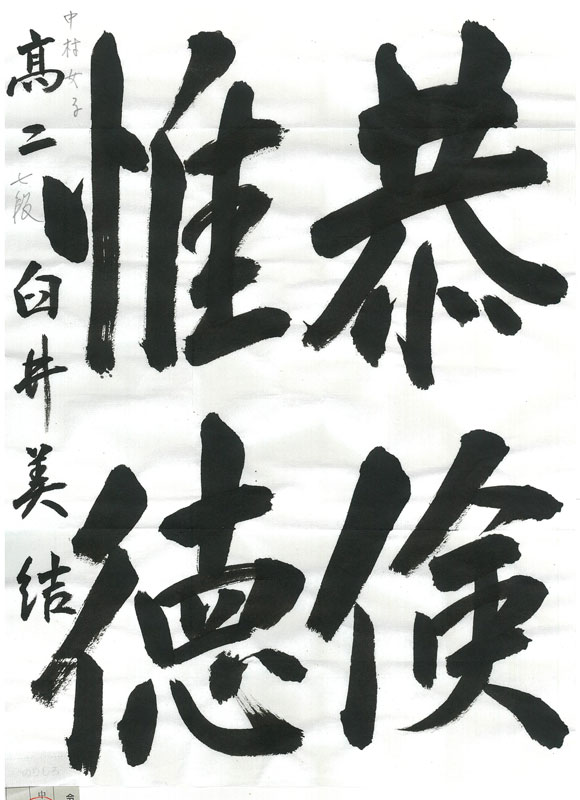 恭倹
惟徳
高二 臼井美結
中村女子
七段